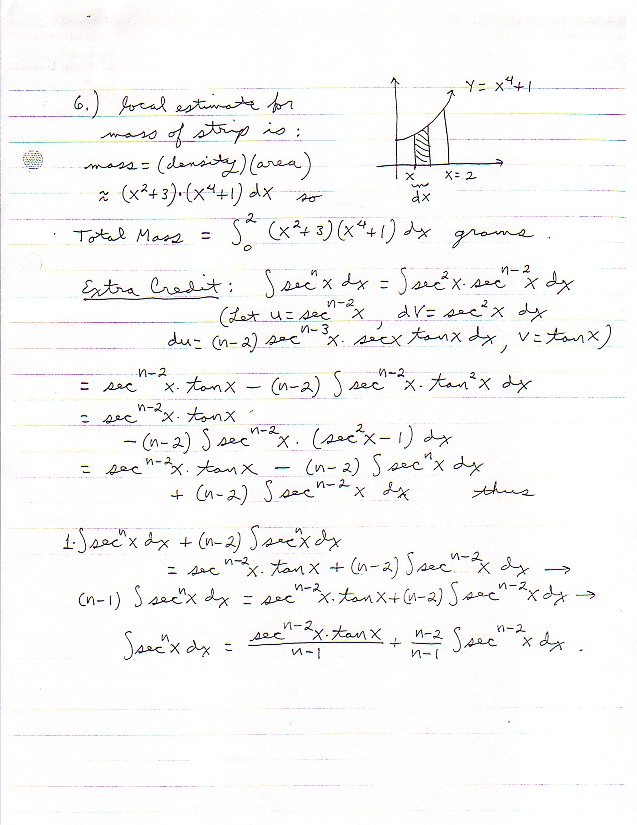 6.) local estimate for
mass of strip is:
mass = (density)(area)
≈ (x²+3)·(x⁴+1) dx so
Y = x⁴+1
x
X = 2
dx
Total Mass = ∫₀² (x²+3)(x⁴+1) dx grams.
Extra Credit: ∫ secⁿx dx = ∫ sec²x · secⁿ⁻²x dx
(Let u = secⁿ⁻²x, dV = sec²x dx
du = (n-2) secⁿ⁻³x · secx tanx dx, V = tanx)
= secⁿ⁻²x · tanx - (n-2) ∫ secⁿ⁻²x · tan²x dx
= secⁿ⁻²x · tanx
-(n-2) ∫ secⁿ⁻²x · (sec²x - 1) dx
= secⁿ⁻²x · tanx - (n-2) ∫ secⁿx dx
+ (n-2) ∫ secⁿ⁻²x dx thus
1·∫ secⁿx dx + (n-2) ∫ secⁿx dx
= secⁿ⁻²x · tanx + (n-2) ∫ secⁿ⁻²x dx →
(n-1) ∫ secⁿx dx = secⁿ⁻²x · tanx + (n-2) ∫ secⁿ⁻²x dx →
∫ secⁿx dx = (secⁿ⁻²x · tanx)/(n-1) + (n-2)/(n-1) ∫ secⁿ⁻²x dx.